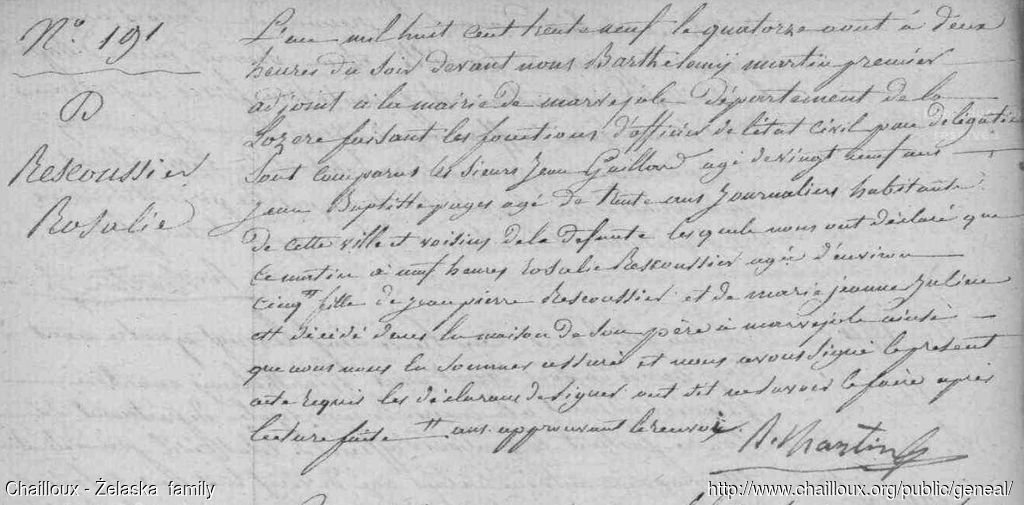 N.o 191
D
Rescoussier
Rosalie
L'an mil huit cent trente neuf le quatorze aout à deux
heures du soir devant nous Barthelemy martin premier
adjoint a la mairie de marvejols Département de la
Lozere faisant les fonctions d'officier de l'état civil par délégation
Sont comparus les sieurs Jean Gaillard agé de vingt neuf ans
Jean Baptitte pages agé de trente ans Journaliers habitants
de cette ville et voisins de la defunte lesquels nous ont déclaré que
ce matin a neuf heures rosalie Rescoussier agée d'environ
cinq # fille de jean pierre Rescoussier et de marie jeanne Juline
est décédé dans la maison de son père a marvejols ainsi
que nous nous en sommes assuré et nous avons signé le présent
acte requis les déclarans de signer ont dit ne savoir le faire après
lecture faite # ans approuvant le renvoi.
B. Martin
Chailloux - Želaska family
http://www.chailloux.org/public/geneal/